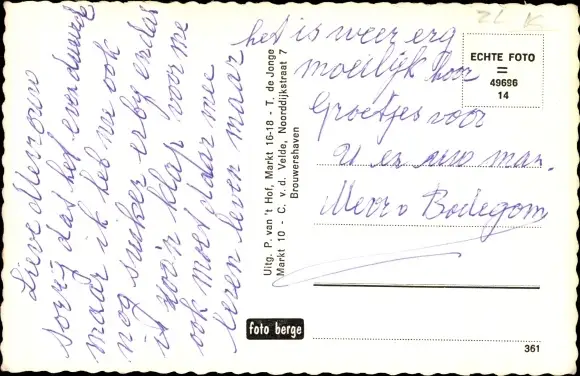 Lieve Mevrouw
sorry dat het even duurde
maar ik heb nu ook
nog suiker erby en dat
is zoo'n klap voor me
ook moet daar mee
leren leven maar
het is weer erg
moeilijk hoor
Groetjes voor
U en uw man.
Mevr v Bodegom
Uitg. P. van 't Hof, Markt 16-18 - T. de Jonge
Markt 10 - C. v. d. Velde, Noorddijkstraat 7
Brouwershaven
ECHTE FOTO
=
49696
14
foto berge
361